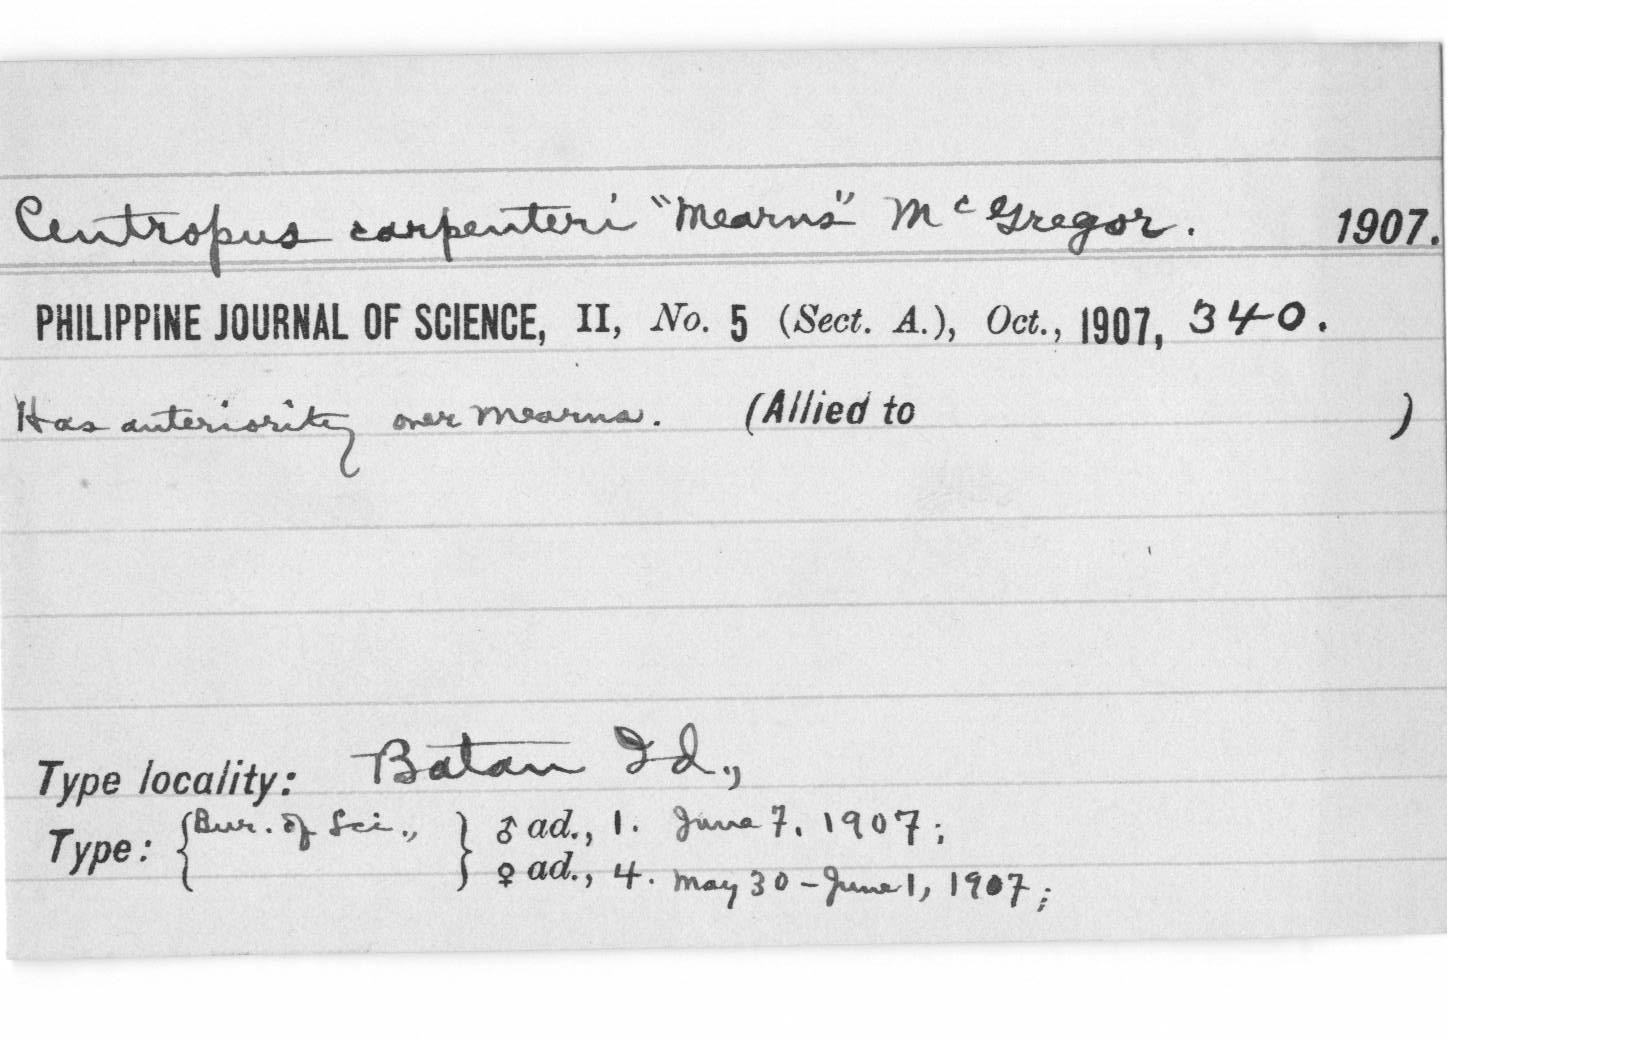 Centropus carpenteri "Mearns" McGregor. 1907.
PHILIPPINE JOURNAL OF SCIENCE, II, No. 5 (Sect. A.), Oct., 1907, 340.
Has anteriority over Mearns. (Allied to )
Type locality: Batan Id.,
Type: { Bur. of Sci., } ♂ ad., 1. June 7, 1907;
♀ ad., 4. May 30 - June 1, 1907;